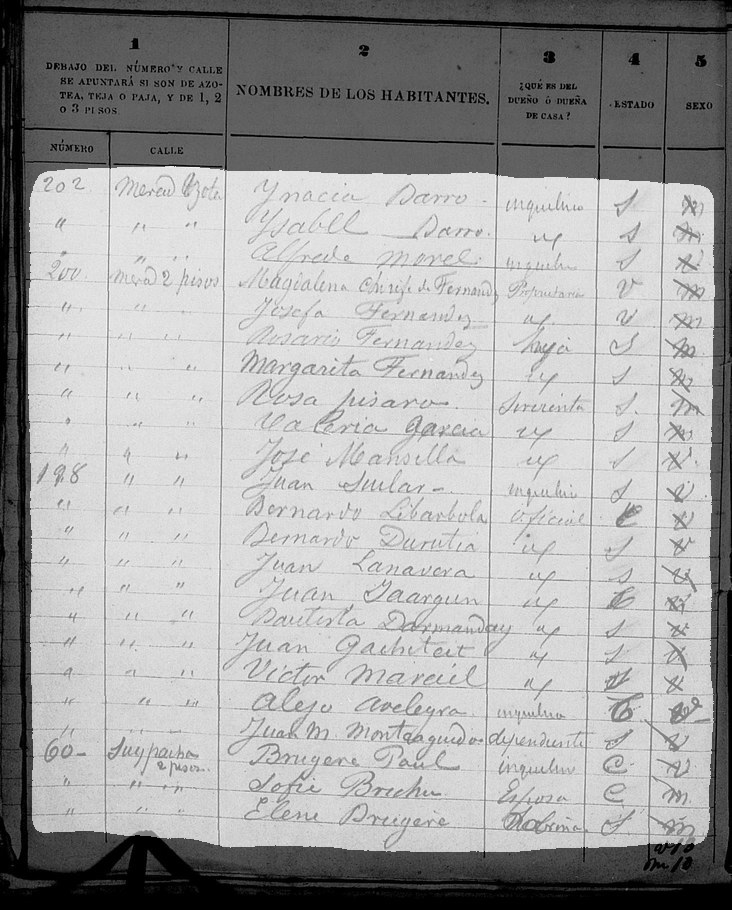 1 2 3 4 5
DEBAJO DEL NÚMERO Y CALLE
SE APUNTARÁ SI SON DE AZO-
TEA, TEJA O PAJA, Y DE 1, 2
O 3 PISOS
NOMBRES DE LOS HABITANTES.
¿QUÉ ES DEL
DUEÑO Ó DUEÑA
DE CASA?
ESTADO
SEXO
NÚMERO CALLE
202 Ynacia Darro - inquilino S m
" " " Ysabell Darro. S m
" " " Alfredo Morel S v
200 2 pisos Magdalena de Fernandez Propietaria V m
" " " Josefa Fernandez V m
" " " Rosario Fernandez hija S m
" " " Margarita Fernandez S m
" " " Rosa pisaro sirvienta S. m
" " " Valeria Garcia S m
" " " José Mansilla S v
198 " " Juan - inquilino S v
" " " Bernardo Libarbola oficial C v
" " " Bernardo Durutia S v
" " " Juan Lanavera S v
" " " Juan C v
" " " Bautista S v
" " " Juan Gachiteit S v
" " " Victor Marciel S v
" " " Alejo Aveleyra inquilino C v
" " " Juan M. dependiente S v
60 - Suypacha 2 pisos. Brugere Paul inquilino C v
" " " Sofie Brechu Esposa C m
" " " Elene Brugere S m
v 13